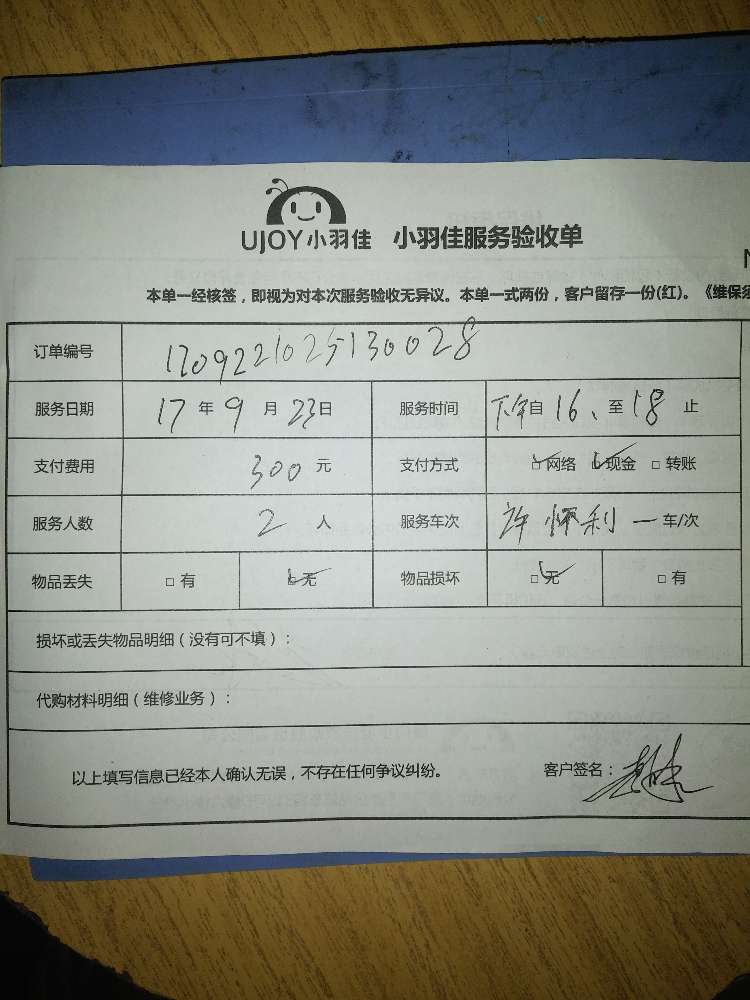 UJOY小羽佳 小羽佳服务验收单
本单一经核签，即视为对本次服务验收无异议。本单一式两份，客户留存一份(红)。《维保须
订单编号 1709221025130028
服务日期 17年9月23日 服务时间 下午自16、至18止
支付费用 300元 支付方式 ☑网络 ☑现金 □转账
服务人数 2人 服务车次 许怀利一车/次
物品丢失 □有 ☑无 物品损坏 ☑无 □有
损坏或丢失物品明细（没有可不填）：
代购材料明细（维修业务）：
以上填写信息已经本人确认无误，不存在任何争议纠纷。 客户签名：